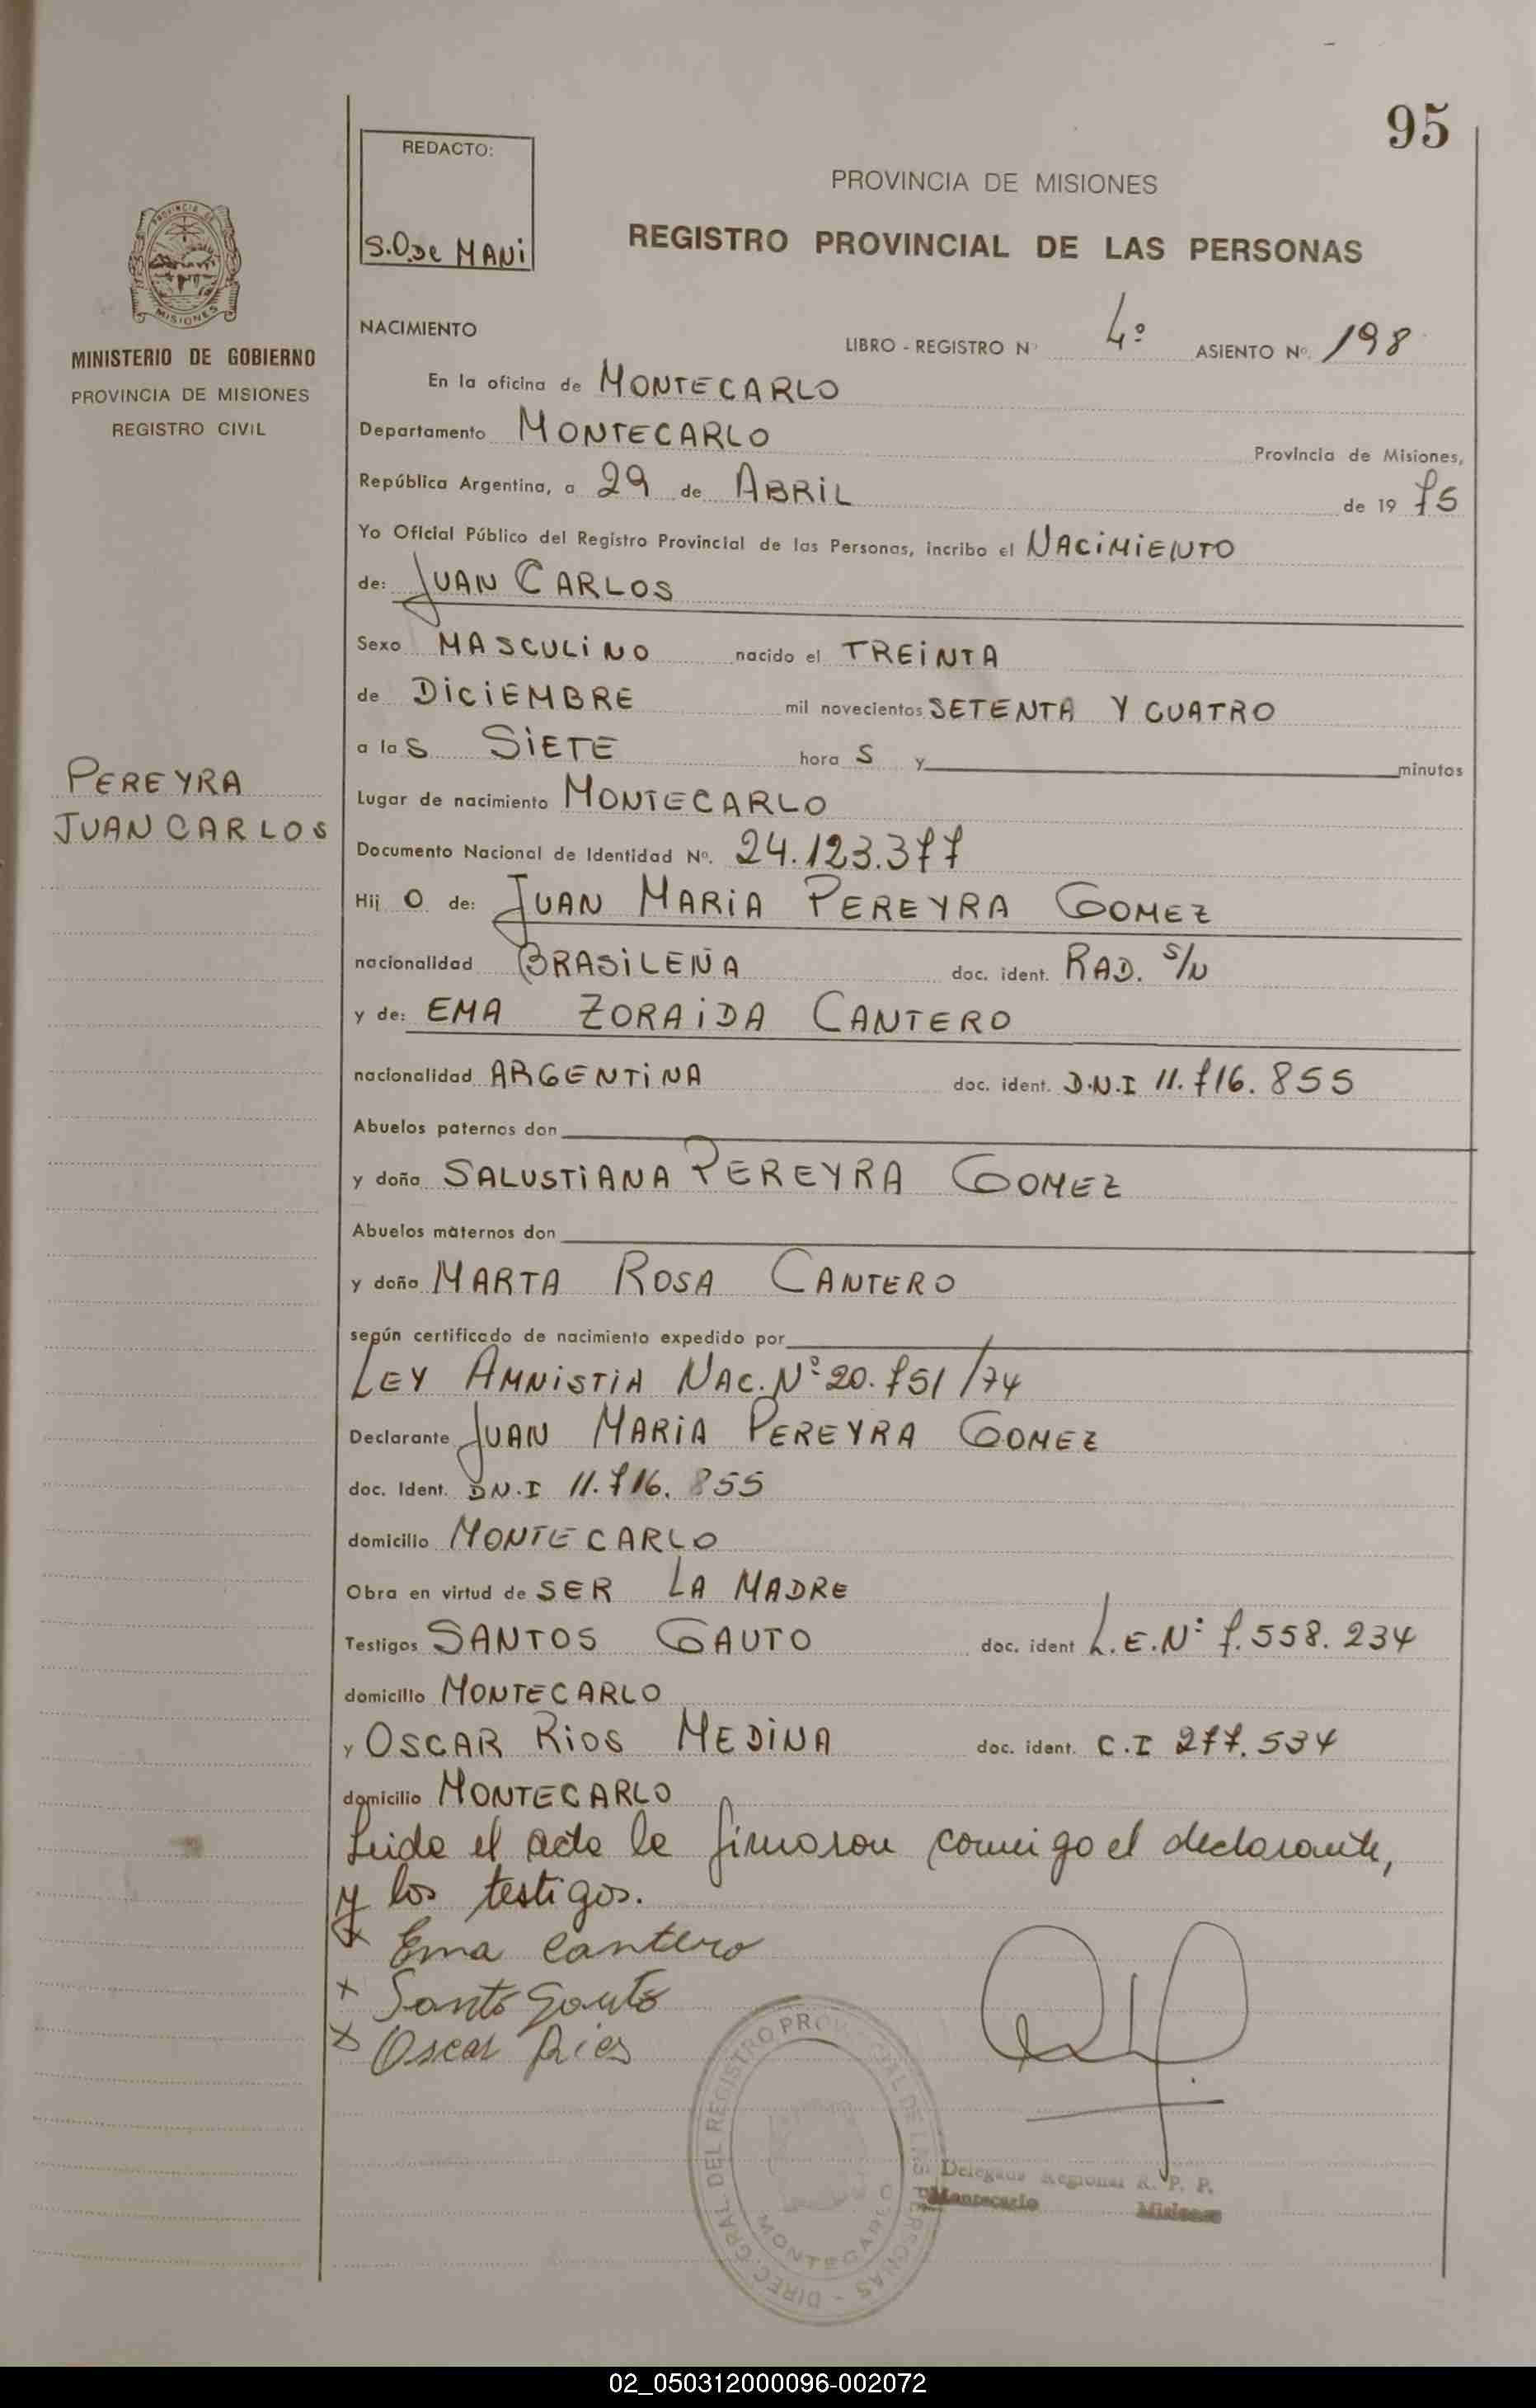 95
REDACTO:
S.O.De MANi
PROVINCIA DE MISIONES
REGISTRO PROVINCIAL DE LAS PERSONAS
PROVINCIA DE
MISIONES
MINISTERIO DE GOBIERNO
PROVINCIA DE MISIONES
REGISTRO CIVIL
NACIMIENTO
LIBRO - REGISTRO Nº 4º ASIENTO Nº. 198
En la oficina de MONTECARLO
Departamento MONTECARLO Provincia de Misiones,
República Argentina, a 29 de ABRIL de 19 75
Yo Oficial Público del Registro Provincial de las Personas, incribo el NACIMIENTO
de: JUAN CARLOS
Sexo MASCULINO nacido el TREINTA
de DICIEMBRE mil novecientos SETENTA Y CUATRO
a las SIETE horas y minutos
PEREYRA
JUAN CARLOS
Lugar de nacimiento MONTECARLO
Documento Nacional de Identidad Nº. 24.123.377
Hijo de: JUAN MARIA PEREYRA GOMEZ
nacionalidad BRASILEÑA doc. ident. RAD. S/N
y de: EMA ZORAIDA CANTERO
nacionalidad ARGENTINA doc. ident. D.N.I 11.716.855
Abuelos paternos don
y doña SALUSTIANA PEREYRA GOMEZ
Abuelos maternos don
y doña MARTA ROSA CANTERO
según certificado de nacimiento expedido por
LEY AMNISTIA NAC. Nº 20.751/74
Declarante JUAN MARIA PEREYRA GOMEZ
doc. Ident. D.N.I 11.716.855
domicilio MONTECARLO
Obra en virtud de SER LA MADRE
Testigos SANTOS GAUTO doc. ident L.E.Nº 7.558.234
domicilio MONTECARLO
y OSCAR RIOS MEDINA doc. ident. C.I 277.534
domicilio MONTECARLO
Leida el acta la firmaron conmigo el declarante,
y los testigos.
x Ema Cantero
x Santo Gauto
x Oscar Rios
DIREC. GRAL. DEL REGISTRO PROVINCIAL DE LAS PERSONAS -
MONTECARLO
Delegado Regional R. P. P.
Montecarlo Misiones
02_050312000096-002072